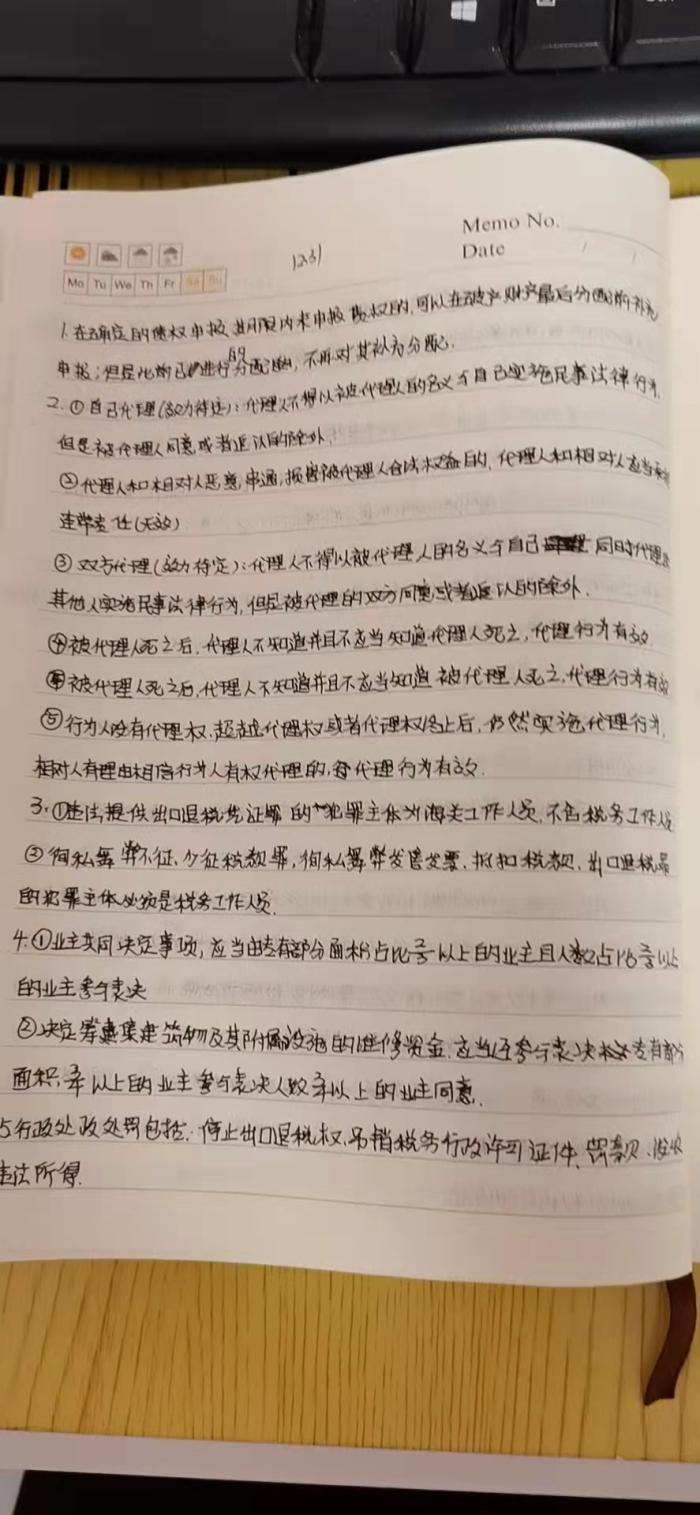 Memo No.
Date / /
Mo Tu We Th Fr Sa Su
1231
1.在确定的债权申报期限内未申报债权的,可以在破产财产最后分配前补充
申报;但是此前已进行的分配,不再对其补充分配.
2.①自己代理(效力待定):代理人不得以被代理人的名义与自己实施民事法律行为,
但是被代理人同意或者追认的除外.
②代理人和相对人恶意串通,损害被代理人合法权益的,代理人和相对人应当承担
连带责任(无效)
③双方代理(效力待定):代理人不得以被代理人的名义与自己同时代理的
其他人实施民事法律行为,但是被代理的双方同意或者追认的除外.
④被代理人死之后,代理人不知道并且不应当知道代理人死之,代理行为有效
④被代理人死之后,代理人不知道并且不应当知道被代理人死之,代理行为有效
⑤行为人没有代理权、超越代理权或者代理权终止后,仍然实施代理行为,
相对人有理由相信行为人有权代理的,代理行为有效.
3.①违法提供出口退税凭证罪的犯罪主体为海关工作人员,不包税务工作人员
②徇私舞弊不征、少征税款罪,徇私舞弊发售发票、抵扣税款、出口退税罪
的犯罪主体必须是税务工作人员.
4.①业主共同决定事项,应当由专有部分面积占比⅔以上的业主且人数占比⅔以上
的业主参与表决
②决定筹集建筑物及其附属设施的维修资金.应当经参与表决专有部分
面积以上的业主参与表决人数以上的业主同意.
5行政处政处罚包括:停止出口退税权、吊销税务行政许可证件、罚款、没收
违法所得.